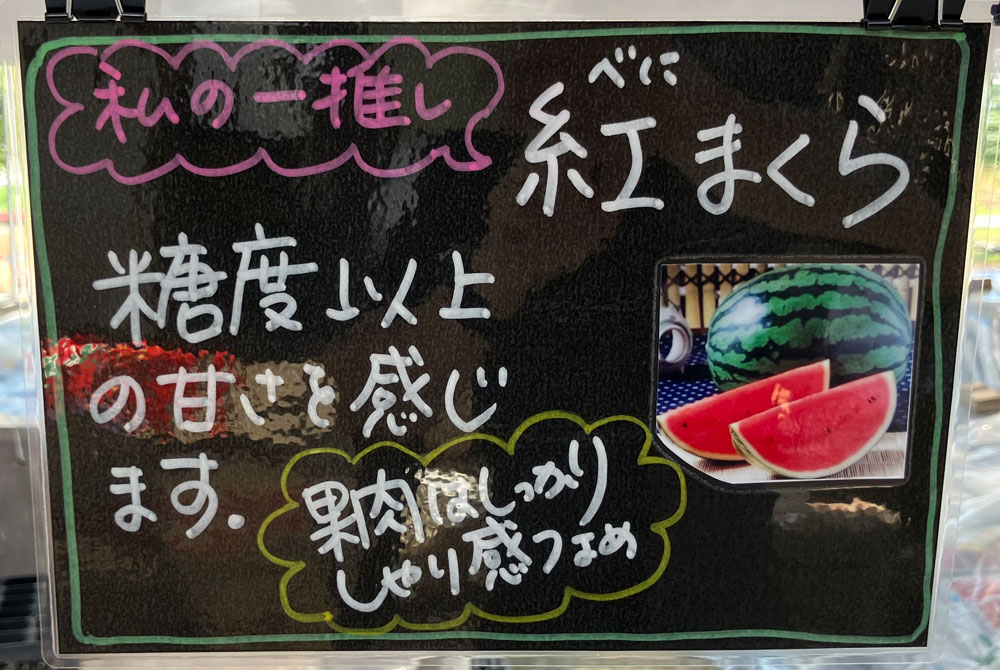 私の一推し
べに
紅まくら
糖度以上
の甘さを感じ
ます.
果肉はしっかり
しゃり感つよめ